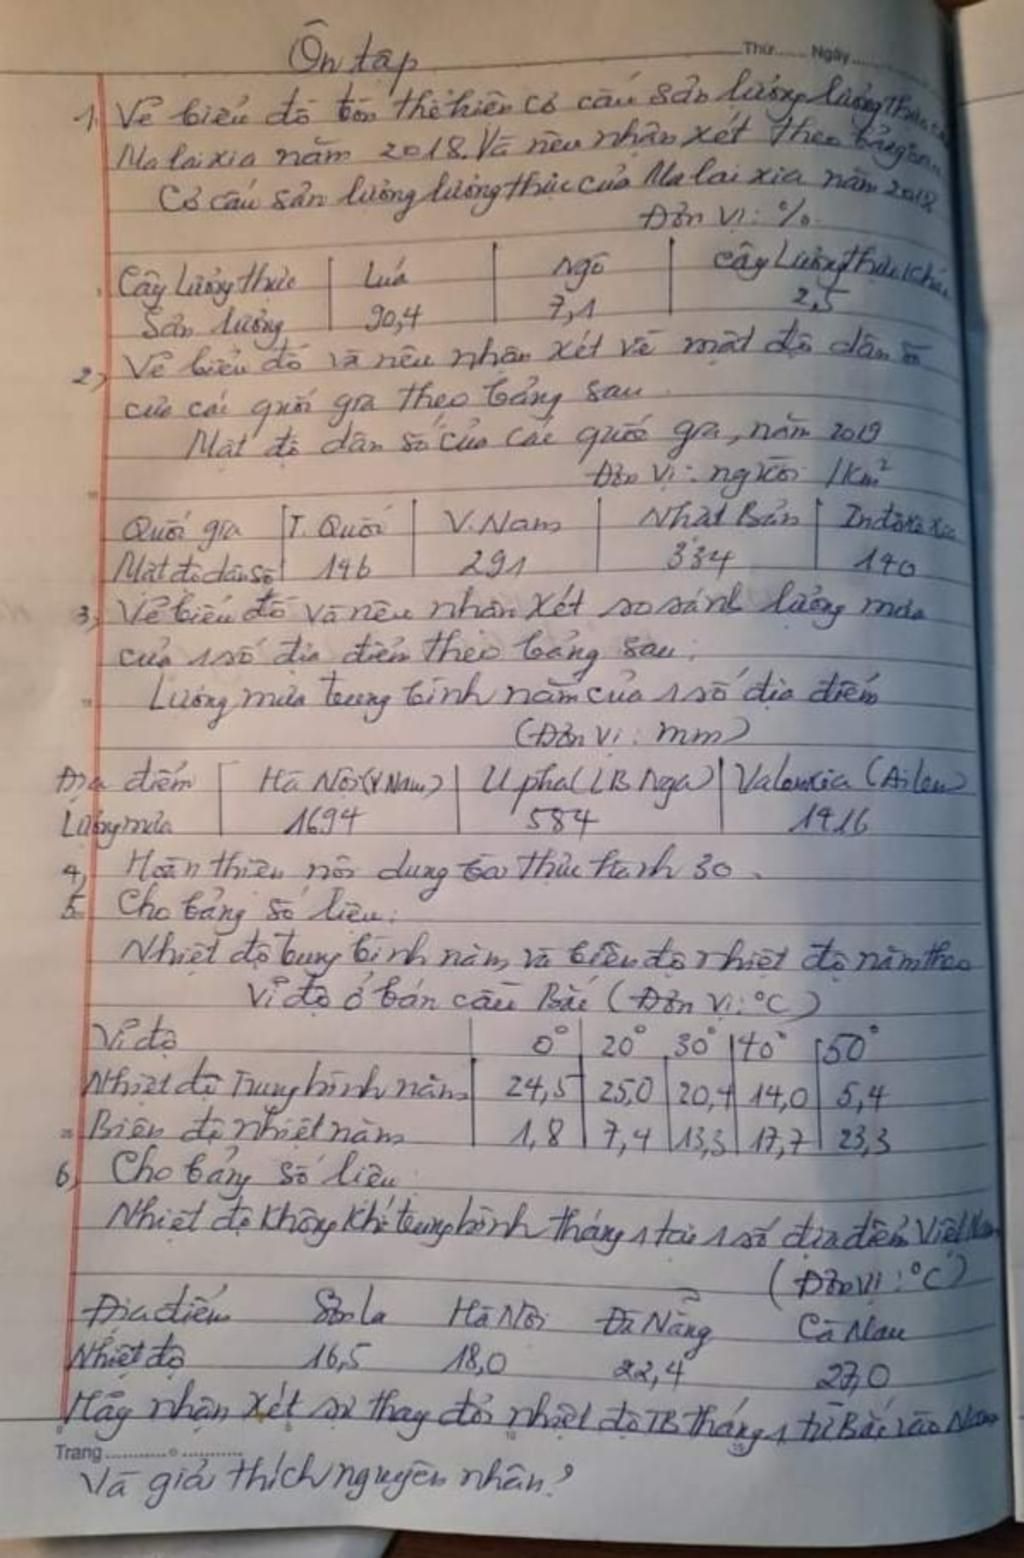 Ôn tập
Thứ...... Ngày..........
1, Vẽ biểu đồ tròn thể hiện cơ cấu sản lượng lương thực của
Malaixia năm 2018. Và nêu nhận xét theo bảng sau
Cơ cấu sản lượng lương thực của Malaixia năm 2018
Đơn vị: %
Cây lương thực | Lúa | Ngô | Cây lương thực khác
Sản lượng | 90,4 | 7,1 | 2,5
2, Vẽ biểu đồ và nêu nhận xét về mật độ dân số
của các quốc gia theo bảng sau
Mật độ dân số của các quốc gia, năm 2019
Đơn vị: người /km²
Quốc gia | T. Quốc | V. Nam | Nhật Bản | Inđônêxia
Mật độ dân số | 146 | 291 | 334 | 140
3, Vẽ biểu đồ và nêu nhận xét so sánh lượng mưa
của 1 số địa điểm theo bảng sau:
Lượng mưa trung bình năm của 1 số địa điểm
(Đơn vị: mm)
Địa điểm | Hà Nội (V Nam) | Upha (LB Nga) | Valenxia (Ailen)
Lượng mưa | 1694 | 584 | 1416
4, Hoàn thiện nội dung bài thực hành 30.
5. Cho bảng số liệu:
Nhiệt độ trung bình năm và biên độ nhiệt độ năm theo
vĩ độ ở bán cầu Bắc (Đơn vị: °C)
Vĩ độ | 0° | 20° | 30° | 40° | 50°
Nhiệt độ Trung bình năm | 24,5 | 25,0 | 20,4 | 14,0 | 5,4
Biên độ nhiệt năm | 1,8 | 7,4 | 13,3 | 17,7 | 23,3
6, Cho bảng số liệu
Nhiệt độ không khí trung bình tháng 1 tại 1 số địa điểm Việt Nam
(Đơn vị: °C)
Địa điểm Sơn La Hà Nội Đà Nẵng Cà Mau
Nhiệt độ 16,5 18,0 22,4 27,0
Hãy nhận xét sự thay đổi nhiệt độ TB tháng 1 từ Bắc vào Nam
Trang..............
Và giải thích nguyên nhân?